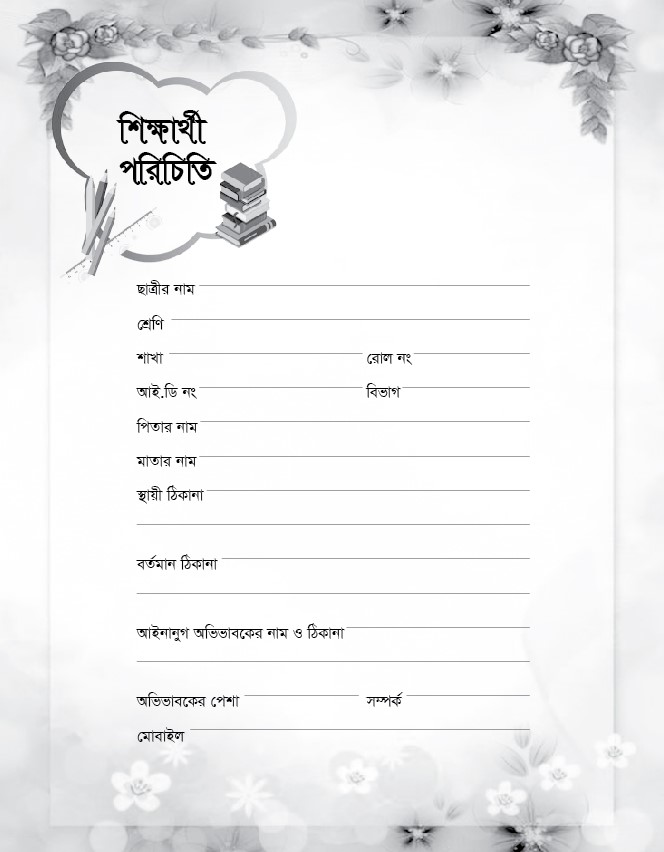 শিক্ষার্থী
পরিচিতি
ছাত্রীর নাম
শ্রেণি
শাখা রোল নং
আই.ডি নং বিভাগ
পিতার নাম
মাতার নাম
স্থায়ী ঠিকানা
বর্তমান ঠিকানা
আইনানুগ অভিভাবকের নাম ও ঠিকানা
অভিভাবকের পেশা সম্পর্ক
মোবাইল